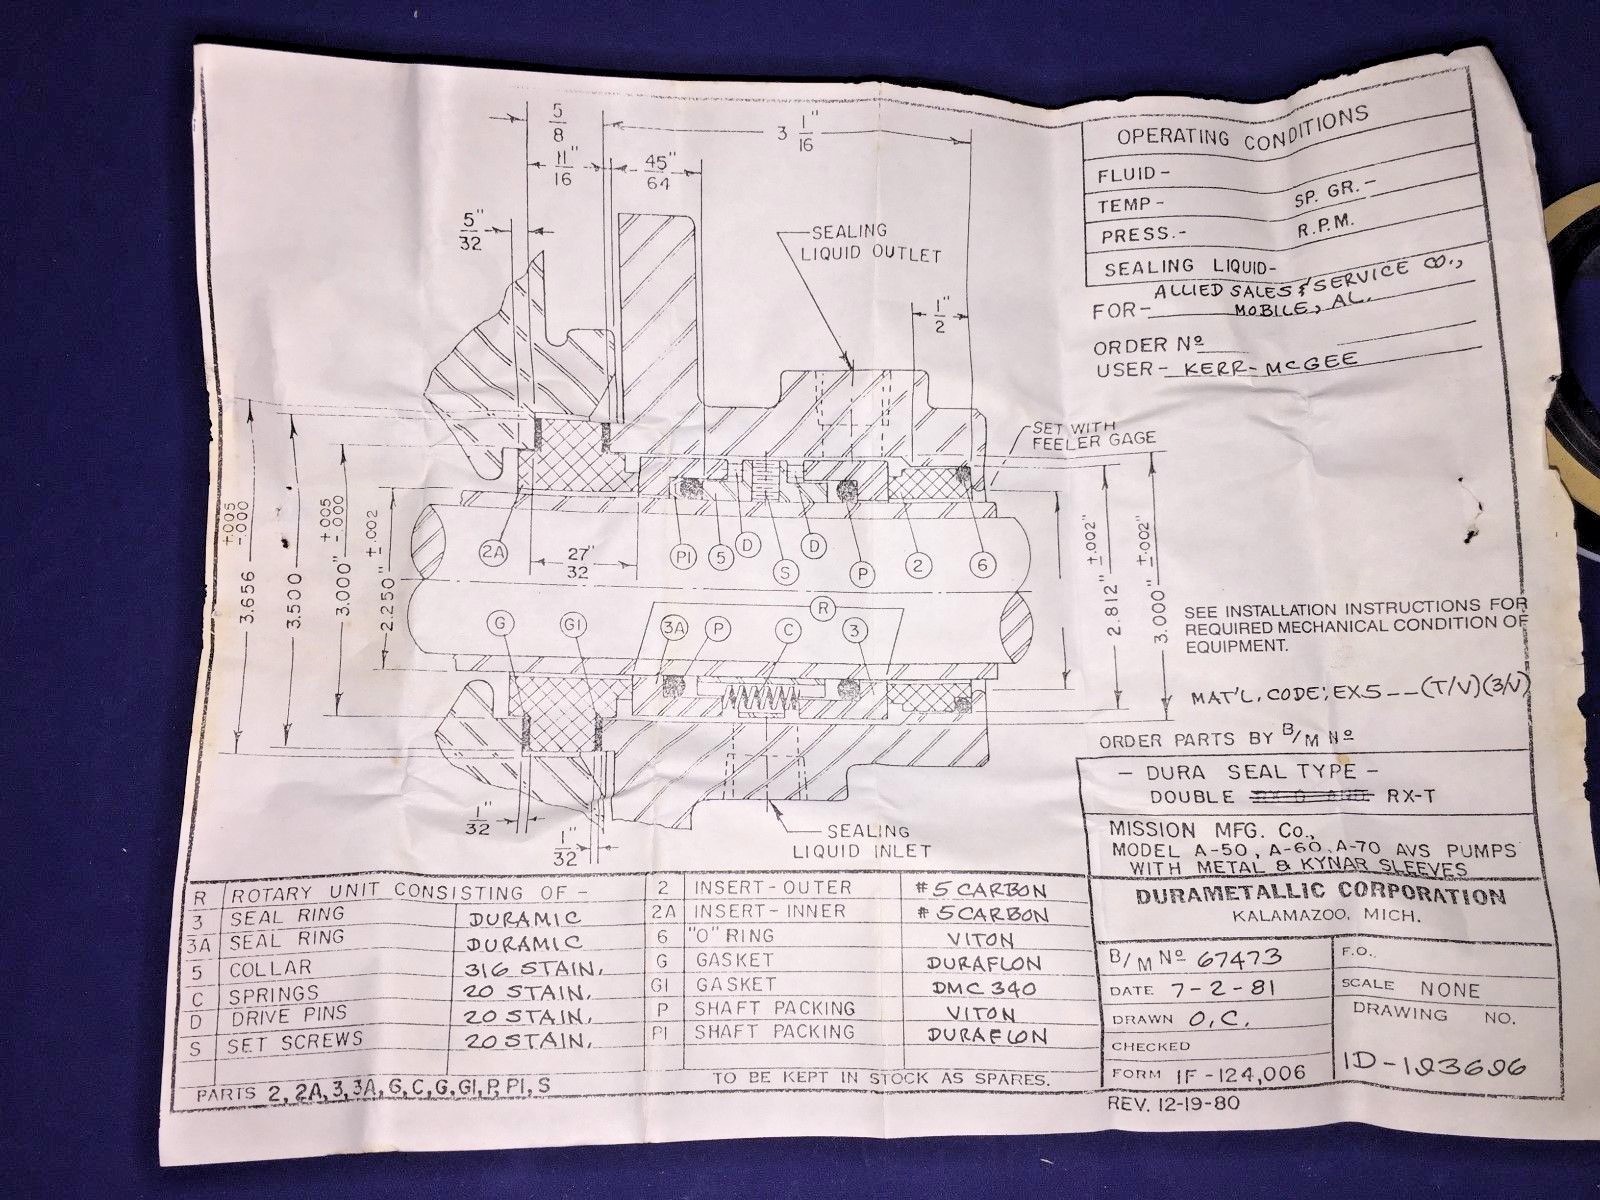 5/8
3 1"/16
11"/16
45"/64
5"/32
SEALING
LIQUID OUTLET
1"/2
OPERATING CONDITIONS
FLUID-
TEMP- SP. GR.-
PRESS.- R.P.M.
SEALING LIQUID-
FOR- ALLIED SALES & SERVICE CO.,
MOBILE, AL.
ORDER Nº
USER- KERR-McGEE
SET WITH
FEELER GAGE
3.656 +.005 -.000
3.500
3.000" +.005 -.000
2.250" ±.002
2A
27"/32
P1
5
D
S
D
P
2
6
R
G
G1
3A
P
C
3
2.812" ±.002"
3.000" ±.002"
SEE INSTALLATION INSTRUCTIONS FOR
REQUIRED MECHANICAL CONDITION OF
EQUIPMENT.
MAT'L. CODE: EX5--(T/V)(3/V)
ORDER PARTS BY B/M Nº
1"/32
1"/32
SEALING
LIQUID INLET
- DURA SEAL TYPE -
DOUBLE RX-T
MISSION MFG. Co.,
MODEL A-50, A-60, A-70 AVS PUMPS
WITH METAL & KYNAR SLEEVES
DURAMETALLIC CORPORATION
KALAMAZOO, MICH.
B/M Nº 67473
F.O.
DATE 7-2-81
SCALE NONE
DRAWN O.C.
DRAWING NO.
CHECKED
FORM 1F-124,006
REV. 12-19-80
R ROTARY UNIT CONSISTING OF -
3 SEAL RING DURAMIC
3A SEAL RING DURAMIC
5 COLLAR 316 STAIN.
C SPRINGS 20 STAIN.
D DRIVE PINS 20 STAIN.
S SET SCREWS 20 STAIN.
2 INSERT-OUTER #5 CARBON
2A INSERT-INNER #5 CARBON
6 "O" RING VITON
G GASKET DURAFLON
G1 GASKET DMC 340
P SHAFT PACKING VITON
P1 SHAFT PACKING DURAFLON
PARTS 2, 2A, 3, 3A, 6, C, G, G1, P, P1, S TO BE KEPT IN STOCK AS SPARES.